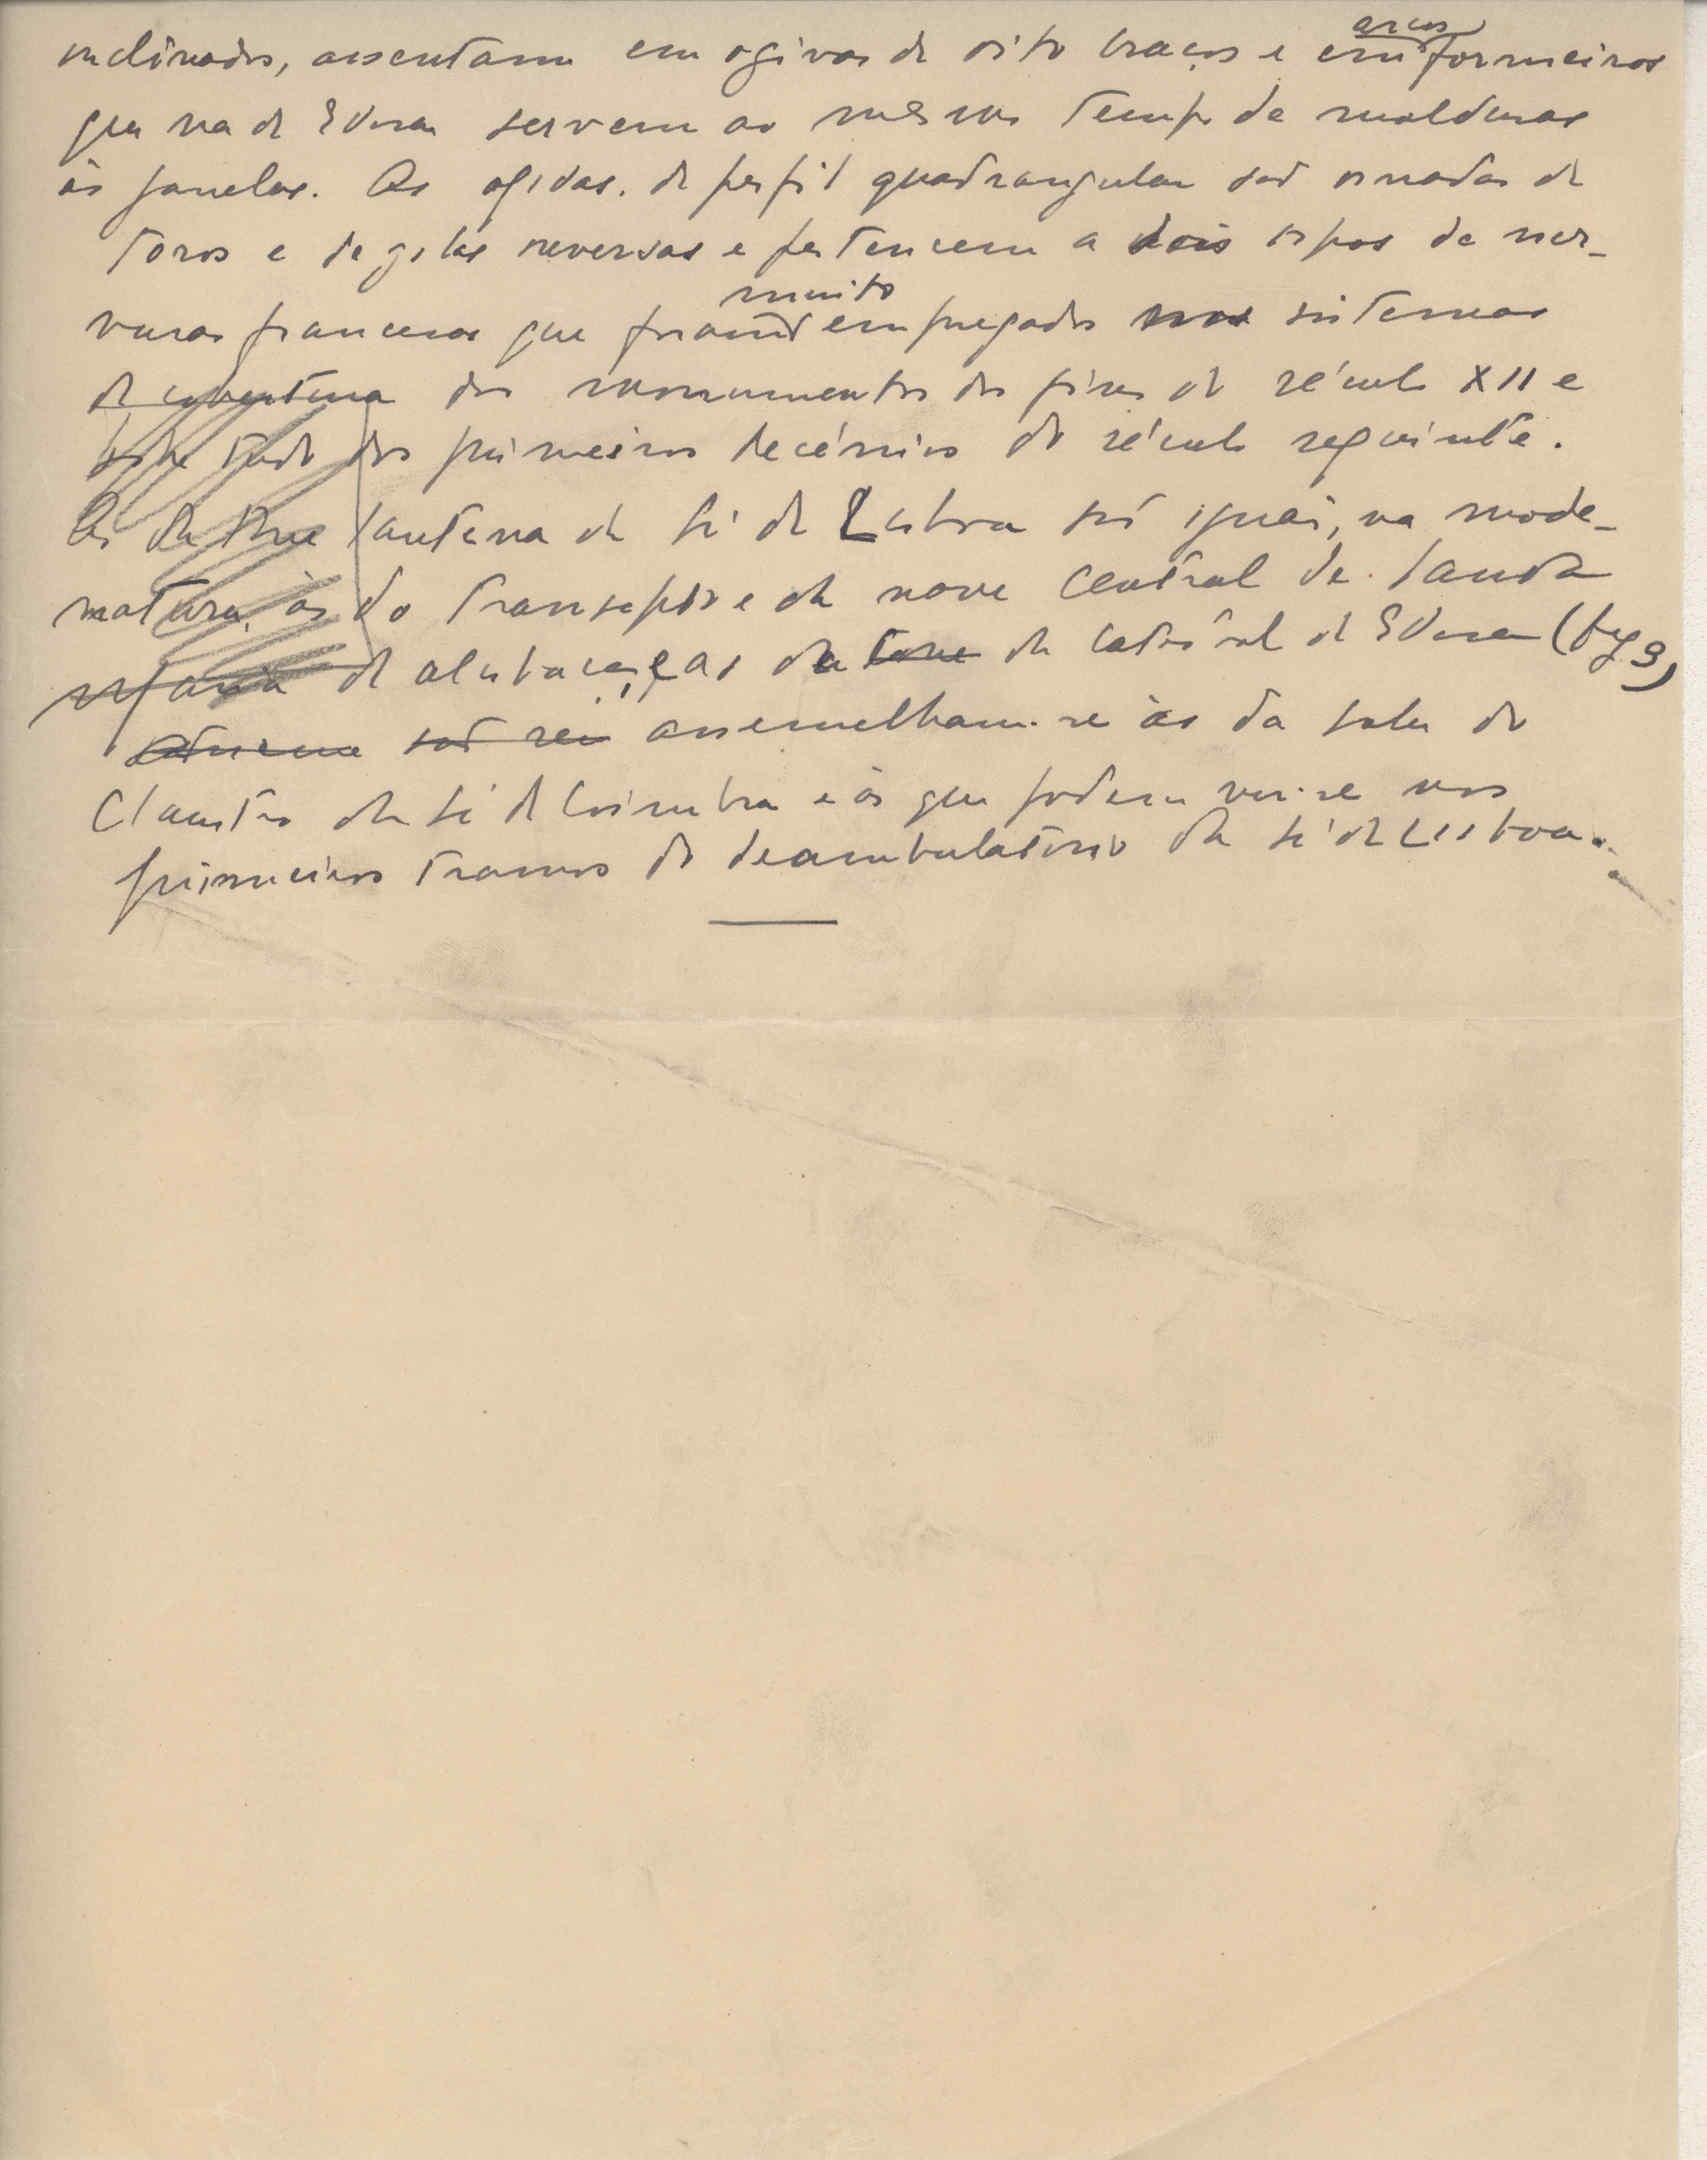 inclinados, assentam em ogivas de oito braços e em arcos formeiros
que na de Evora servem ao mesmo tempo de molduras
às janelas. As ogivas, de perfil quadrangular são ornadas de
toros e de golas reversas e pertencem a dois tipos de ner-
vuras francesas que foram muito empregados nos sistemas
de cobertura dos monumentos dos fins do século XII e
sobre tudo dos primeiros decénios do século seguinte.
As da torre lanterna da Sé de Lisboa são iguais, na mode-
natura, às do transepto e da nave central de Santa
Maria de Alcobaça, e as da torre da catedral de Evora (fig 3)
assemelham-se às da sala do
Claustro da Sé de Coimbra e às que podem ver-se nos
primeiros tramos do deambulatório da Sé de Lisboa.